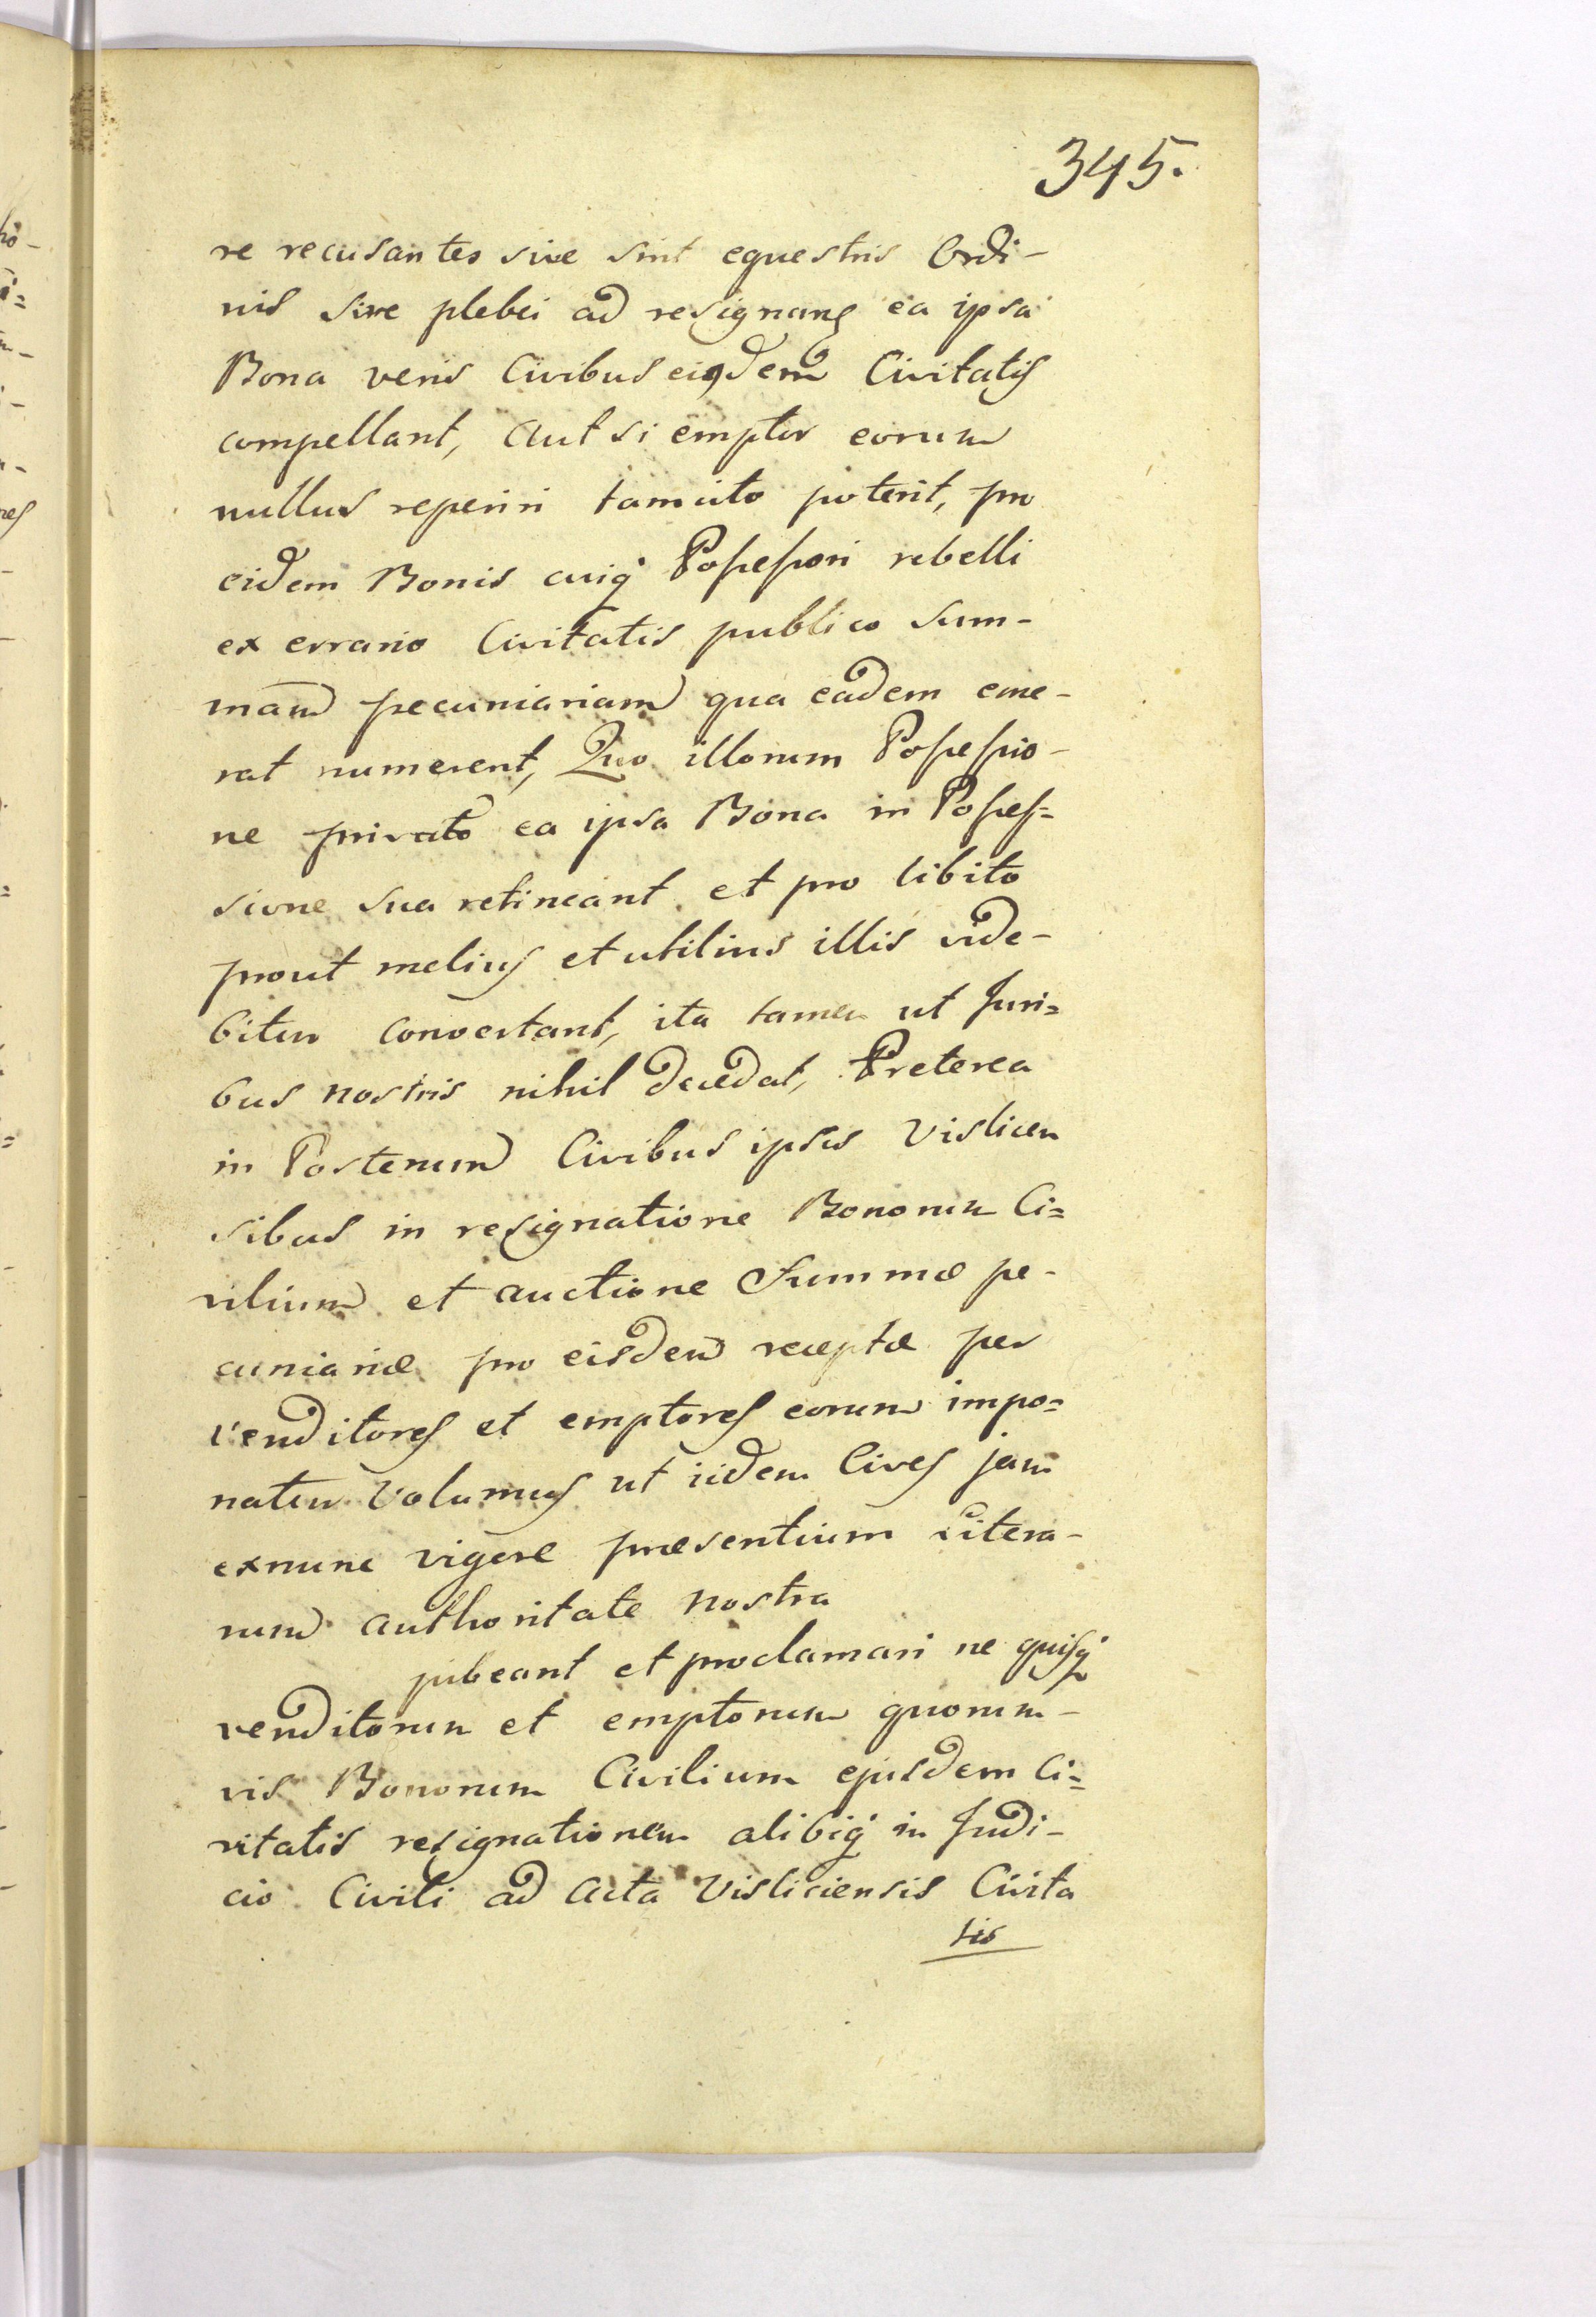 345.
re recusantes sive sint equestris Ordi-
nis sive plebei ad resignang ea ipsa
Bona veris Civibus eiqdem Civitatis
compellant, Aut si emptor eorum
nullus reperiri tamcito poterit, pro
eidem Bonis cuiq Possessori rebelli
ex errario Civitatis publico sum-
mam pecuniariam qua eadem eme-
rat numerent, Quo illorum Possessio-
ne privato ea ipsa Bona in Posses-
sione sua retineant et pro libito
prout melius et utilius illis vide-
bitur convertant, ita tamen ut Juri=
bus nostris nihil decedat, Preterea
in Posterum Civibus ipsis Vislicen
sibus in resignatione Bonorum Ci=
vilium et auctione Summæ pe-
cuniariæ pro eisdem receptæ per
venditores et emptores eorum impo=
natur Volumus ut iidem Cives jam
exnunc vigore præsentium Litera-
rum authoritate nostra
jubeant et proclamari ne quisq
venditorum et emptorum quorum-
vis Bonorum Civilium ejusdem Ci=
vitatis resignationem alibiq in Judi-
cio Civili ad Acta Visliciensis Civita
tis